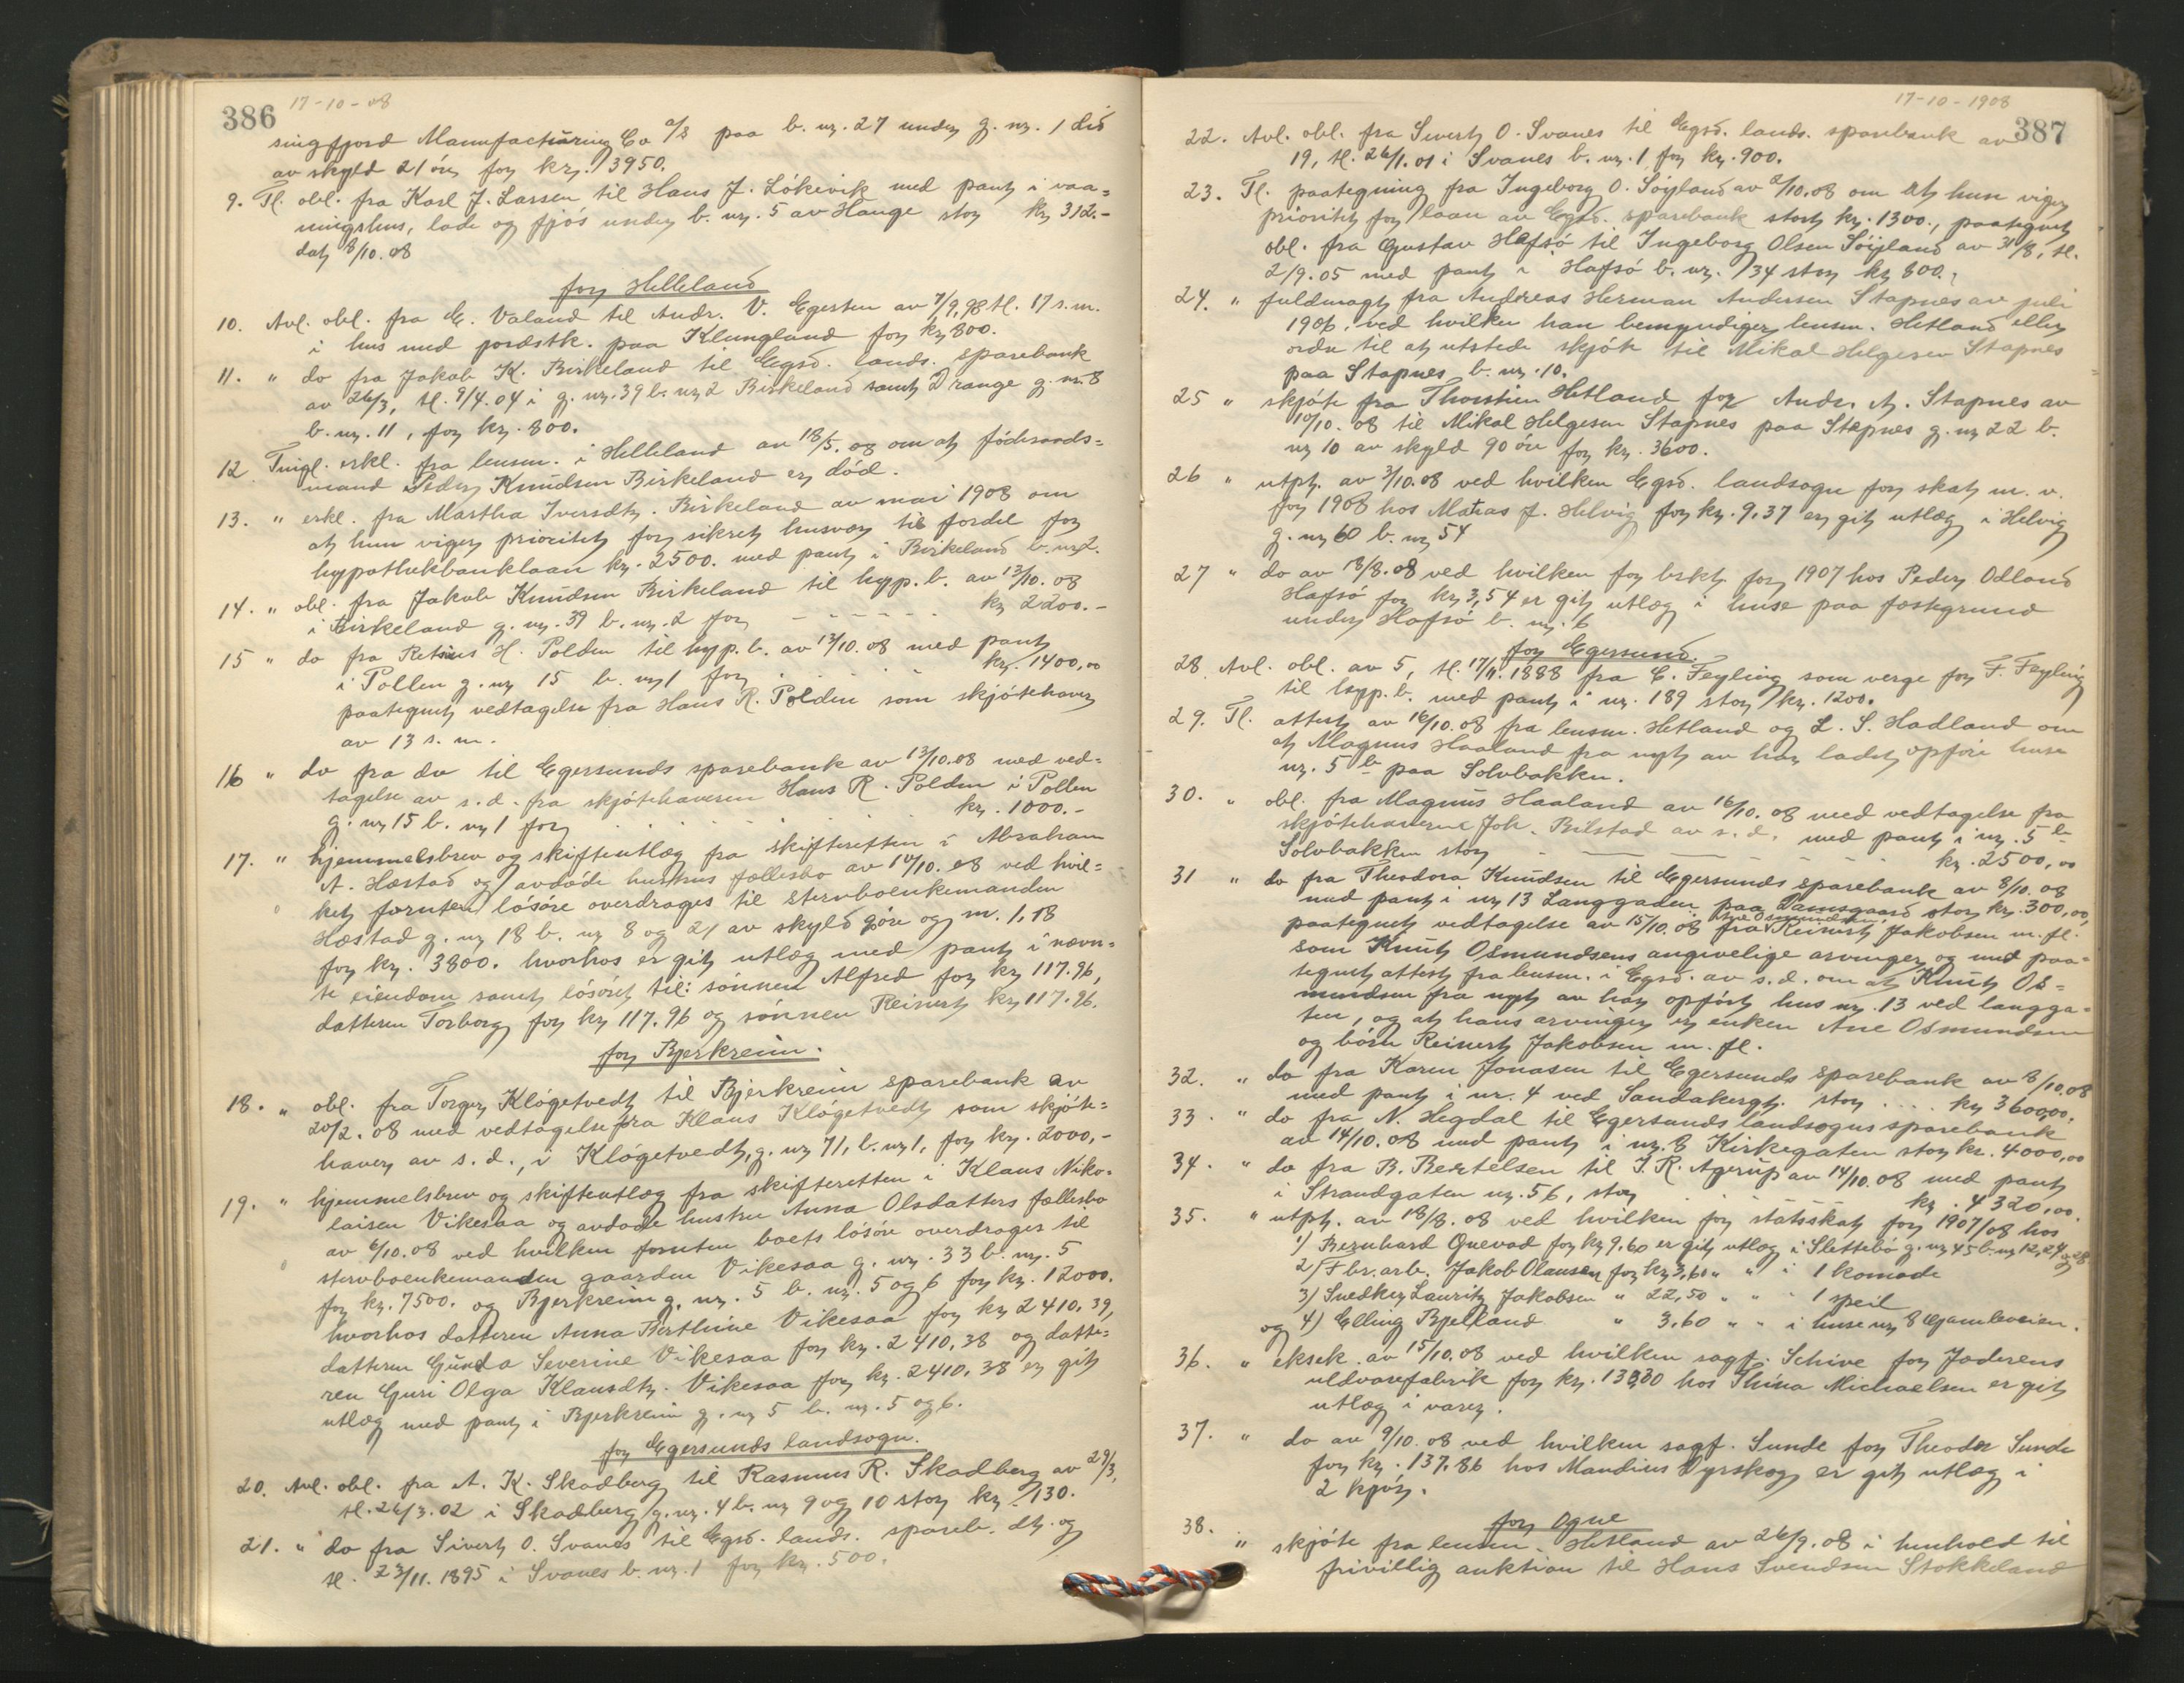 386 17-10-08
singfjord Manufacturing Co a/s paa b. nr. 27 under g. nr. 1 dis
av skyld 21 öre for kr. 13950.
9. Tl. obl. fra Karl J. Larsen til Hans J. Lökivik med pant i vaa=
ningshus, lade og fjös under b. nr. 5 av Hauge stor kr 312.-
dat. 8/10.08
for Helleland
10. Avl. obl. fra E. Valand til Andr. V. Egesten av 7/9,98 tl. 17 s.m.
i hus med jordstk. paa Klungland for kr 800.
11. " do fra Jakob K. Birkeland til Egsd. lands. sparebank
av 26/3, tl. 9/4.04 i g. nr. 39 b. nr 2 Birkeland samt Drange g. nr. 8
b. nr. 11, for kr. 800.
12 Tingl. erkl. fra lensm. i Helleland av 18/5.08 om at föderaads=
mand Peder Knudsen Birkeland er död.
13. " erkl. fra Martha Iversdtr. Birkeland av mai 1908 om
at hun viger prioritet for sikret husvær til fordel for
hypothekbanklaan kr. 2500. med pant i Birkeland b. nr 2.
14. " obl. fra Jakob Knudsen Birkeland til hyp. b. av 13/10.08
i Birkeland g. nr. 39 b. nr. 2 for - - - - - kr 2200.-
15 " do fra Retsius H. Polden til hyp. b. av 13/10.08 med pant
i Pollen g. nr 15 b. nr 1 for . . . kr. 1400,00
paategnet vedtagelse fra Hans R. Polden som skjötehaver
av 13 s. m.
16 " do fra do til Egersunds sparebank av 13/10.08 med ved=
tagelse av s. d. fra skjötehaveren Hans R. Polden i Pollen
g. nr 15 b. nr 1 for . . . . . . kr. 1000.-
17. " hjemmelsbrev og skifteutlæg fra skifteretten i Abraham
A. Hæstad og avdöde hustrus fællesbo av 10/10.08 ved hvil=
ket foruten lösöre overdrages til stervboenkemanden
Hæstad g. nr 18 b. nr 8 og 21 av skyld 9öre og m. 1,18
for kr. 3800. hvorhos er git utlæg med pant i nævn=
te eiendom samt lösöret til: sönnen Alfred for kr 117.96,
datteren Torborg for kr 117.96 og sönnen Reinert kr 117.96.
for Bjerkreim.
18. " obl. fra Torger Klögetvedt til Bjerkreim sparebank av
20/2.08 med vedtagelse fra Klaus Klögetvedt som skjöte=
haver av s. d., i Klögetvedt, g. nr 71, b. nr 1, for kr. 2000,-
19. " hjemmelsbrev og skifteutlæg fra skifteretten i Klaus Niko=
laisen Vikesaa og avdöde hustru Anna Olsdatters fællesbo
av 6/10.08 ved hvilken foruten boets lösöre overdrages til
stervboenkemanden gaarden Vikesaa g. nr. 33 b. nr. 5
for kr. 7500. og Bjerkreim g. nr. 5 b. nr. 5 og 6 for kr. 12000.
hvorhos datteren Anna Berthine Vikesaa for kr 2410,39,
datteren Gunda Severine Vikesaa for kr. 2410,38 og datte=
ren Guri Olga Klausdtr. Vikesaa for kr. 2410,38 er git
utlæg med pant i Bjerkreim g. nr 5 b. nr. 5 og 6.
for Egersunds landsogn.
20. Avl. obl. fra A. K. Skadberg til Rasmus R. Skadberg av 29/3,
tl. 26/3.02 i Skadberg g. nr. 4 b. nr 9 og 10 stor kr. 130.
21. " do fra Sivert O. Svanes til Egsd. lands. spareb. dt. og
tl. 23/11.1895 i Svanes b. nr. 1 for kr. 500.
17-10-1908 387
22. Avl. obl. fra Sivert O. Svanes til Egsd. lands. sparebank av
19, tl. 26/1.01 i Svanes b. nr. 1 for kr. 900.
23. Tl. paategning fra Ingeborg O. Söyland av 2/10.08 om at hun viger
prioritet for laan av Egsd. sparebank stort kr. 1300., paategnet
obl. fra Gustav Hafsö til Ingeborg Olsen Söyland av 31/8, tl.
2/9.05 med pant i Hafsö b. nr. 134 stor kr 800.,
24. " fuldmagt fra Andreas Herman Andersen Stapnes av juli
1906, ved hvilken han bemyndiger lensm. Hetland eller
ordre til at utstede skjöte til Mikal Helgesen Stapnes
paa Stapnes b. nr. 10.
25 " skjöte fra Thorstein Hetland for Andr. A. Stapnes av
10/10.08 til Mikal Helgesen Stapnes paa Stapnes g. nr 22 b.
nr 10 av skyld 90 öre for kr. 3600.
26 " utpt. av 3/10.08 ved hvilken Egsd. landsogn for skat m. v.
for 1908 hos Matias J. Helvig for kr. 9,37 er git utlæg i Helvig
g. nr 60 b. nr 54
27 " do av 18/8.08 ved hvilken for brkt. for 1907 hos Peder Odland
Hafsö for kr 3,54 er git utlæg i huse paa fæstegrund
under Hafsö b. nr. 6
for Egersund.
28. Avl. obl. av 5, tl. 17/11.1888 fra C. Feyling som verge for F. Feyling
til hyp. b. med pant i nr. 189 stor kr. 1200.
29. Tl. attest av 16/10.08 fra lensm. Hetland og L. S. Hadland om
at Magnus Haaland fra nyt av har ladet opföre huse
nr. 5 b paa Solvbakken.
30. " obl. fra Magnus Haaland av 16/10.08 med vedtagelse fra
skjötehaverne Joh. Bilstad av s. d. med pant i nr. 5 b
Solvbakken stor - - - - - kr. 2500,00
31 " do fra Theodora Knudsen til Egersunds sparebank av 8/10.08
med pant i nr 13 Langgaden paa Damsgaard stor kr. 300,00,
paategnet vedtagelse av 15/10.08 fra Ane Osmundsen, Reinert Jakobsen m. fl.
som Knut Osmundsens angivelige arvinger og med paa=
tegnet attest fra lensm. i Egsd. av s. d. om at Knut Os=
mundsen fra nyt av har opfört hus nr. 13 ved langga=
ten, og at hans arvinger er enken Ane Osmundsen
og börn Reinert Jakobsen m. fl.
32. " do fra Karen Jonasen til Egersunds sparebank av 8/10.08
med pant i nr. 4 ved Sandakergt. stor . . . kr 3600,00.
33. " do fra N. Hegdal til Egersunds landsogns sparebank
av 14/10.08 med pant i nr. 8 Kirkegaten stor kr. 4000,00
34. " do fra B. Bertelsen til T. R. Agerup av 14/10.08 med pant
i Strandgaten nr. 56, stor - - - - kr. 4320,00.
35. " utpt. av 18/8.08 ved hvilken for statsskat for 1907/08 hos
1) Bernhard Quevad for kr 9.60 er git utlæg i Slettebö g. nr 45 b. nr 12, 24 og 28
2) Fbr. arb. Jakob Olausen for kr 3,60 " " i 1 komode
3) Snedker Lauritz Jakobsen " 22,50 " " - 1 speil
og 4) Elling Bjelland " 3.60 " " i huse nr 8 Gamleveien.
36. " eksek. av 15/10.08 ved hvilken sagf. Schive for Jæderens
uldvarefabrik for kr. 133,30 hos Thina Michaelsen er git
utlæg i varer.
37. " do av 9/10.08 ved hvilken sagf. Sunde for Theodor Sunde
for kr. 137.86 hos Mandius Dyrskog er git utlæg i
2 kjör.
for Ogne
38. " skjöte fra lensm. Hetland av 26/9.08 i henhold til
frivillig auktion til Hans Svendsen Stokkeland